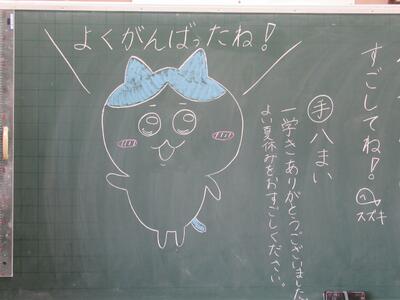 よくがんばったね!
すごしてね!
スズキ
㋙八まい
一学きありがとうございました。
よい夏休みをおすごしください。